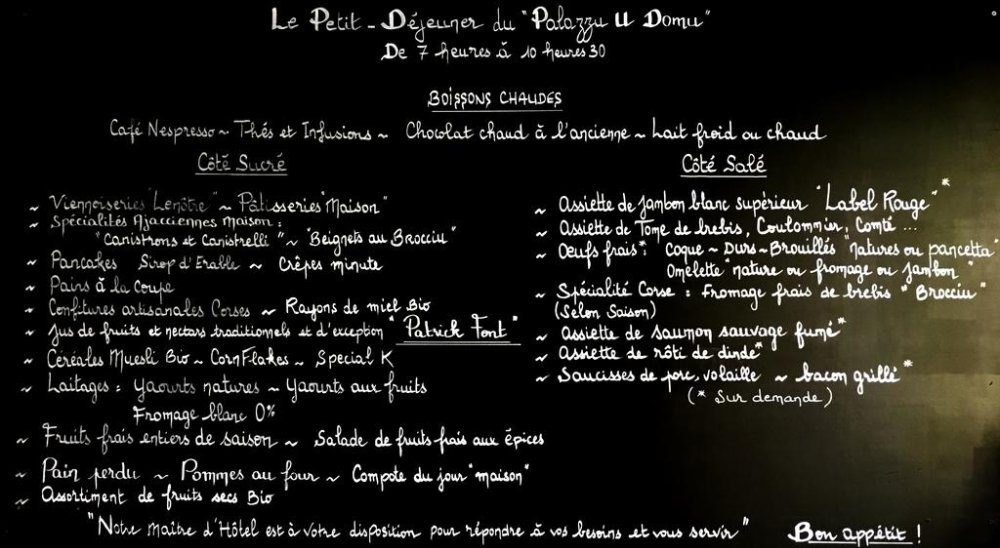 Le Petit - Déjeuner du "Palazzu U Domu"
De 7 heures à 10 heures 30
BOISSONS CHAUDES
Café Nespresso ~ Thés et Infusions ~ Chocolat chaud à l'ancienne ~ Lait froid ou chaud
Côté Sucré
~ Viennoiseries "Lenôtre" ~ Pâtisseries "Maison"
~ Spécialités Ajacciennes Maison :
"Canistrons et Canistrelli" ~ "Beignets au Brocciu"
~ Pancakes Sirop d'Erable ~ Crêpes minute
~ Pains à la coupe
~ Confitures artisanales Corses ~ Rayons de miel Bio
~ Jus de fruits et nectars traditionnels et d'exception "Patrick Font"
~ Céréales Muesli Bio ~ Corn Flakes ~ Special K
~ Laitages : Yaourts natures ~ Yaourts aux fruits
Fromage blanc 0%
~ Fruits frais entiers de saison ~ Salade de fruits frais aux épices
~ Pain perdu ~ Pommes au four ~ Compote du jour "maison"
~ Assortiment de fruits secs Bio
Côté Salé
~ Assiette de jambon blanc supérieur "Label Rouge"*
~ Assiette de Tome de brebis, Coulommier, Comté ...
~ Oeufs frais* : Coque ~ Durs ~ Brouillés "natures ou pancetta"
Omelette "nature ou fromage ou jambon"
~ Spécialité Corse : Fromage frais de brebis "Brocciu"
(Selon Saison)
~ Assiette de saumon sauvage fumé*
~ Assiette de rôti de dinde*
~ Saucisses de porc, volaille ~ bacon grillé*
(* Sur demande)
"Notre Maître d'Hôtel est à votre disposition pour répondre à vos besoins et vous servir" Bon appétit !